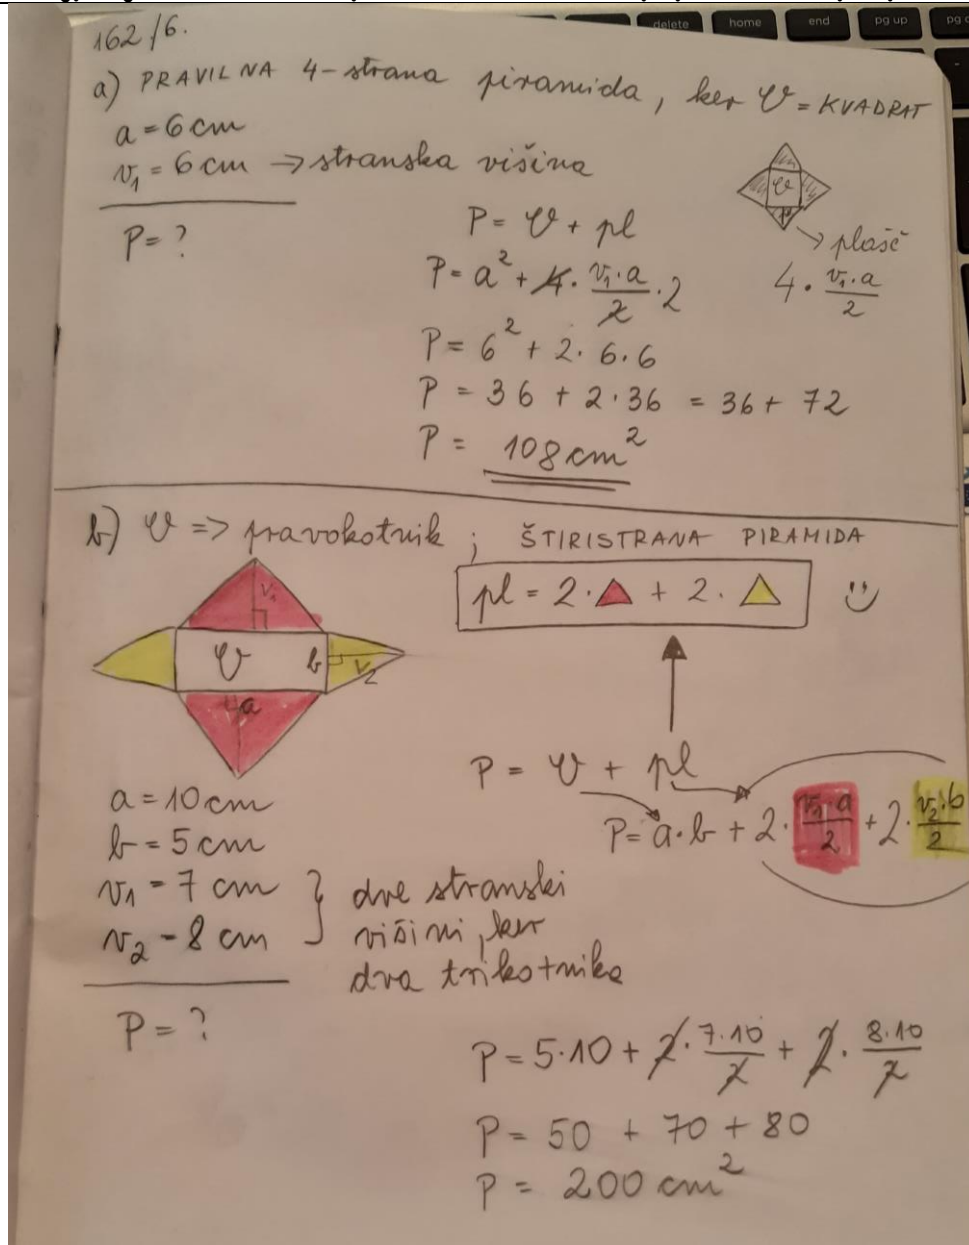 delete home end pg up pg
162/6.
a) PRAVILNA 4-strana piramida, ker V = KVADRAT
a = 6 cm
v₁ = 6 cm → stranska višina
P = ?
V
→ plašč
4 · v₁·a/2
P = V + pl
P = a² + 4 · v₁·a/2 · 2
P = 6² + 2 · 6 · 6
P = 36 + 2 · 36 = 36 + 72
P = 108 cm²
b) V => pravokotnik ; ŠTIRISTRANA PIRAMIDA
pl = 2 · ▲ + 2 · △
v₁
V b v₂
a
P = V + pl
P = a·b + 2 · v₁·a/2 + 2 · v₂·b/2
a = 10 cm
b = 5 cm
v₁ = 7 cm } dve stranski
v₂ - 8 cm višini, ker
dva trikotnika
P = ?
P = 5·10 + 2 · 7·10/2 + 2 · 8·10/2
P = 50 + 70 + 80
P = 200 cm²